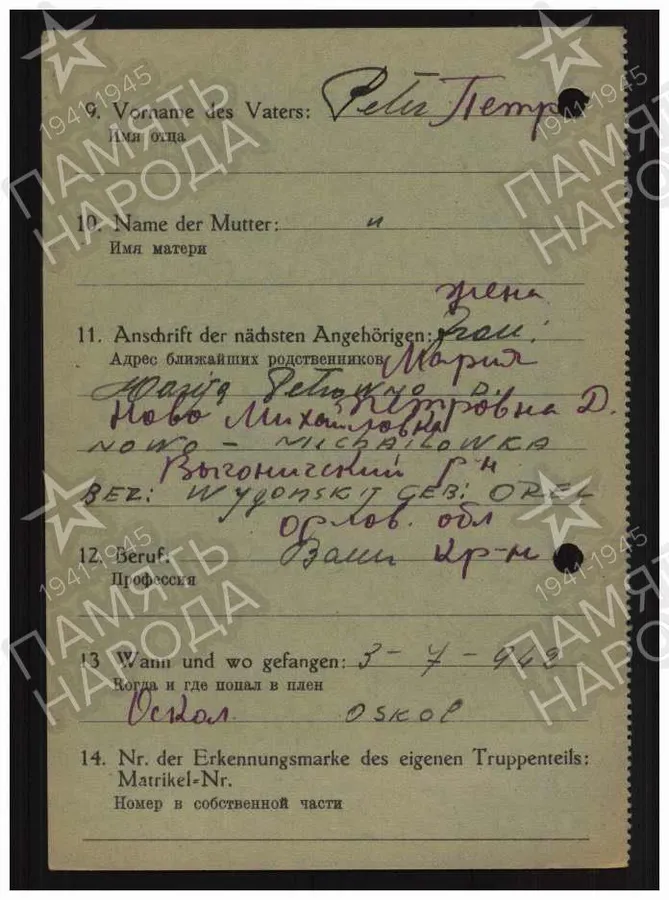 9. Vorname des Vaters: Peter Петр
Имя отца
10. Name der Mutter: "
Имя матери
жена
11. Anschrift der nächsten Angehörigen: Frau:
Адрес ближайших родственников Мария
Marija Petrowna D.
Петровна Д.
Ново Михайловка
NOWO - MICHAILOWKA
Выгоничский р-н
BEZ: WYGONSKIJ GEB: OREL
Орлов. обл
12. Beruf: Bauer Кр-н
Профессия
13 Wann und wo gefangen: 3-7-942
Когда и где попал в плен
Оскол OSKOL
14. Nr. der Erkennungsmarke des eigenen Truppenteils:
Matrikel-Nr.
Номер в собственной части
1941-1945
ПАМЯТЬ
НАРОДА
1941-1945
ПАМЯТЬ
НАРОДА
1941-1945
ПАМЯТЬ
НАРОДА
1941-1945
ПАМЯТЬ
НАРОДА